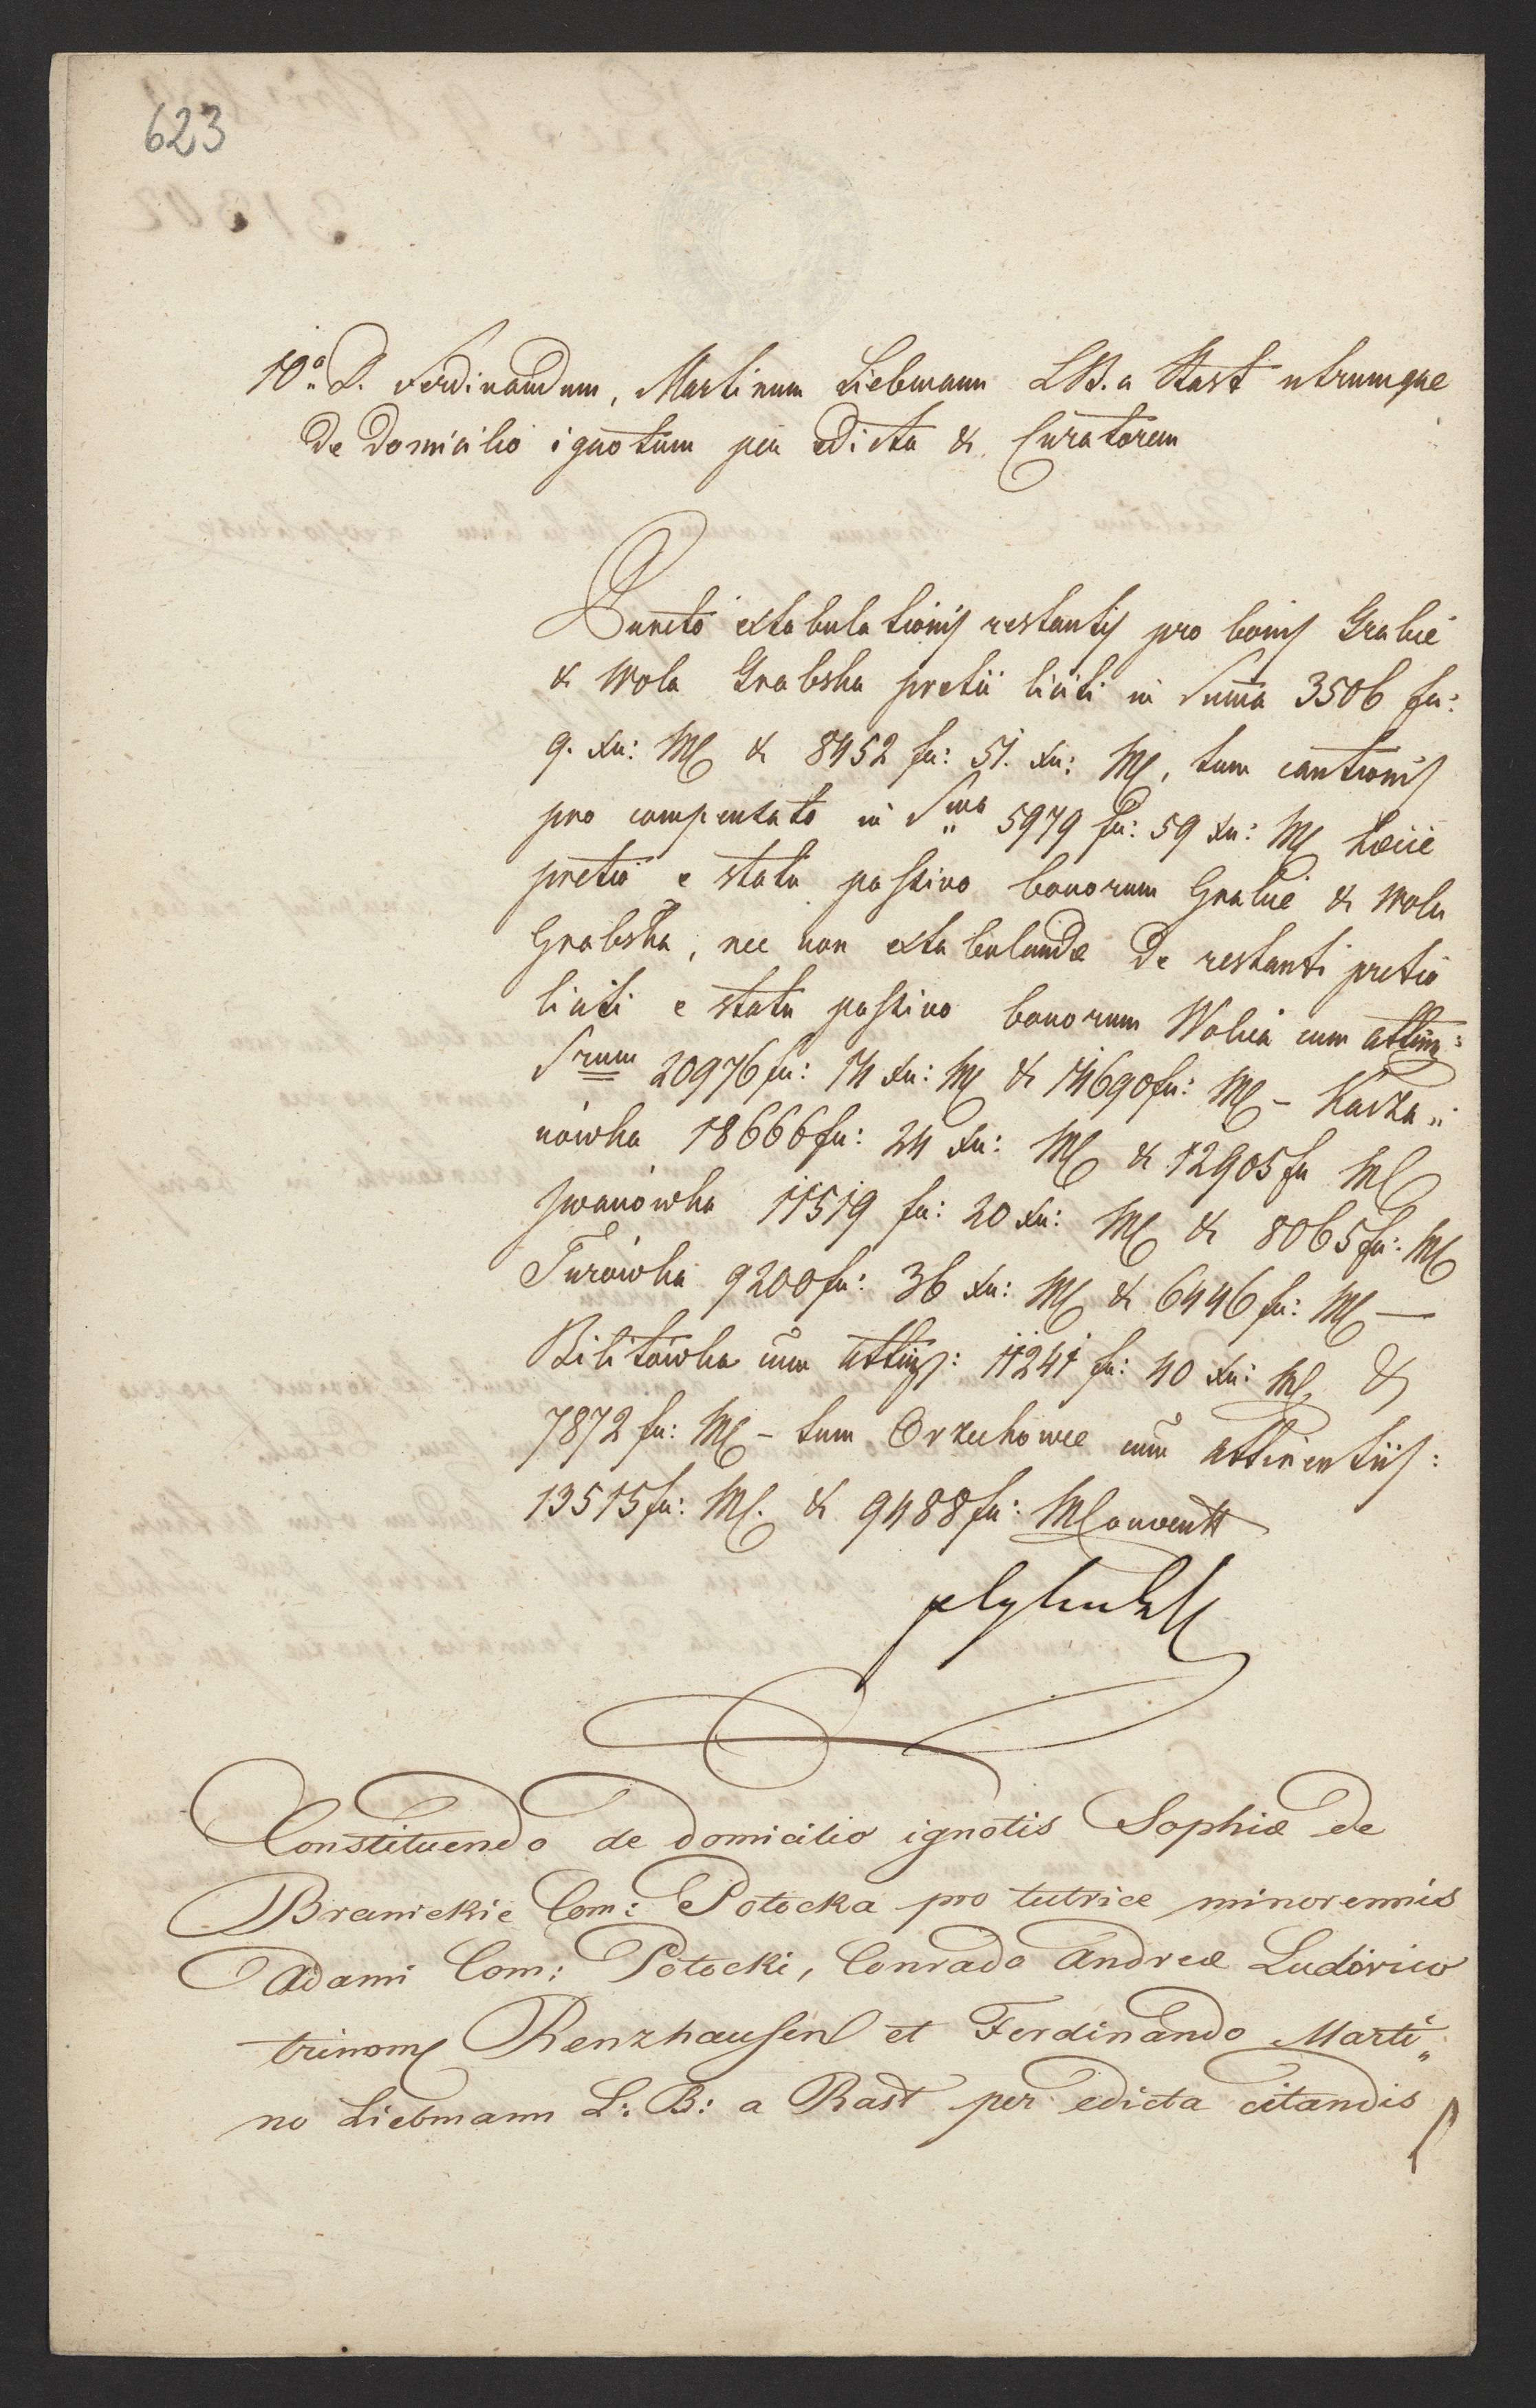 623
10ª D. Ferdinandum, Martinum Liebmann LB. a Rast utrumque
de domicilio ignotum per edicta & Curatorem
Puncto extabulationis restantis pro bonis Grabie
& Wola Grabska pretii liciti in Summa 3506 fr:
9. xr: M & 8452 fr: 51. xr: M, tum cautionis
pro compensato in Sma 5979 fr: 59 xr: M hocce
pretio e statu passivo bonorum Grabie & Wola
Grabska, nec non extabulandæ de restanti pretio
liciti e statu passivo bonorum Wolica cum attin:
Srum 20976 fr: 14 xr: M & 14690 fr: M – Kasza„
nówka 18666 fr: 24 xr: M & 12905 fr M
Iwanówka 11519 fr: 20 xr: M & 8065 fr: M
Turówka 9200 fr: 36 xr: M & 6446 fr: M —
Bilitówka cum atting: 11241 fr: 40 xr: M, &
7872 fr: M – tum Orzechowce cum attinentiis:
13515 fr: M. & 9488 fr: MConvent
Constituendo de domicilio ignotis Sophiæ de
Branickie Com: Potocka pro tutrice minorennis
Adami Com: Potocki, Conrado Andreæ Ludovico
trinom Renzhausen et Ferdinando Marti„
no Liebmann L: B: a Rast per edicta citandis